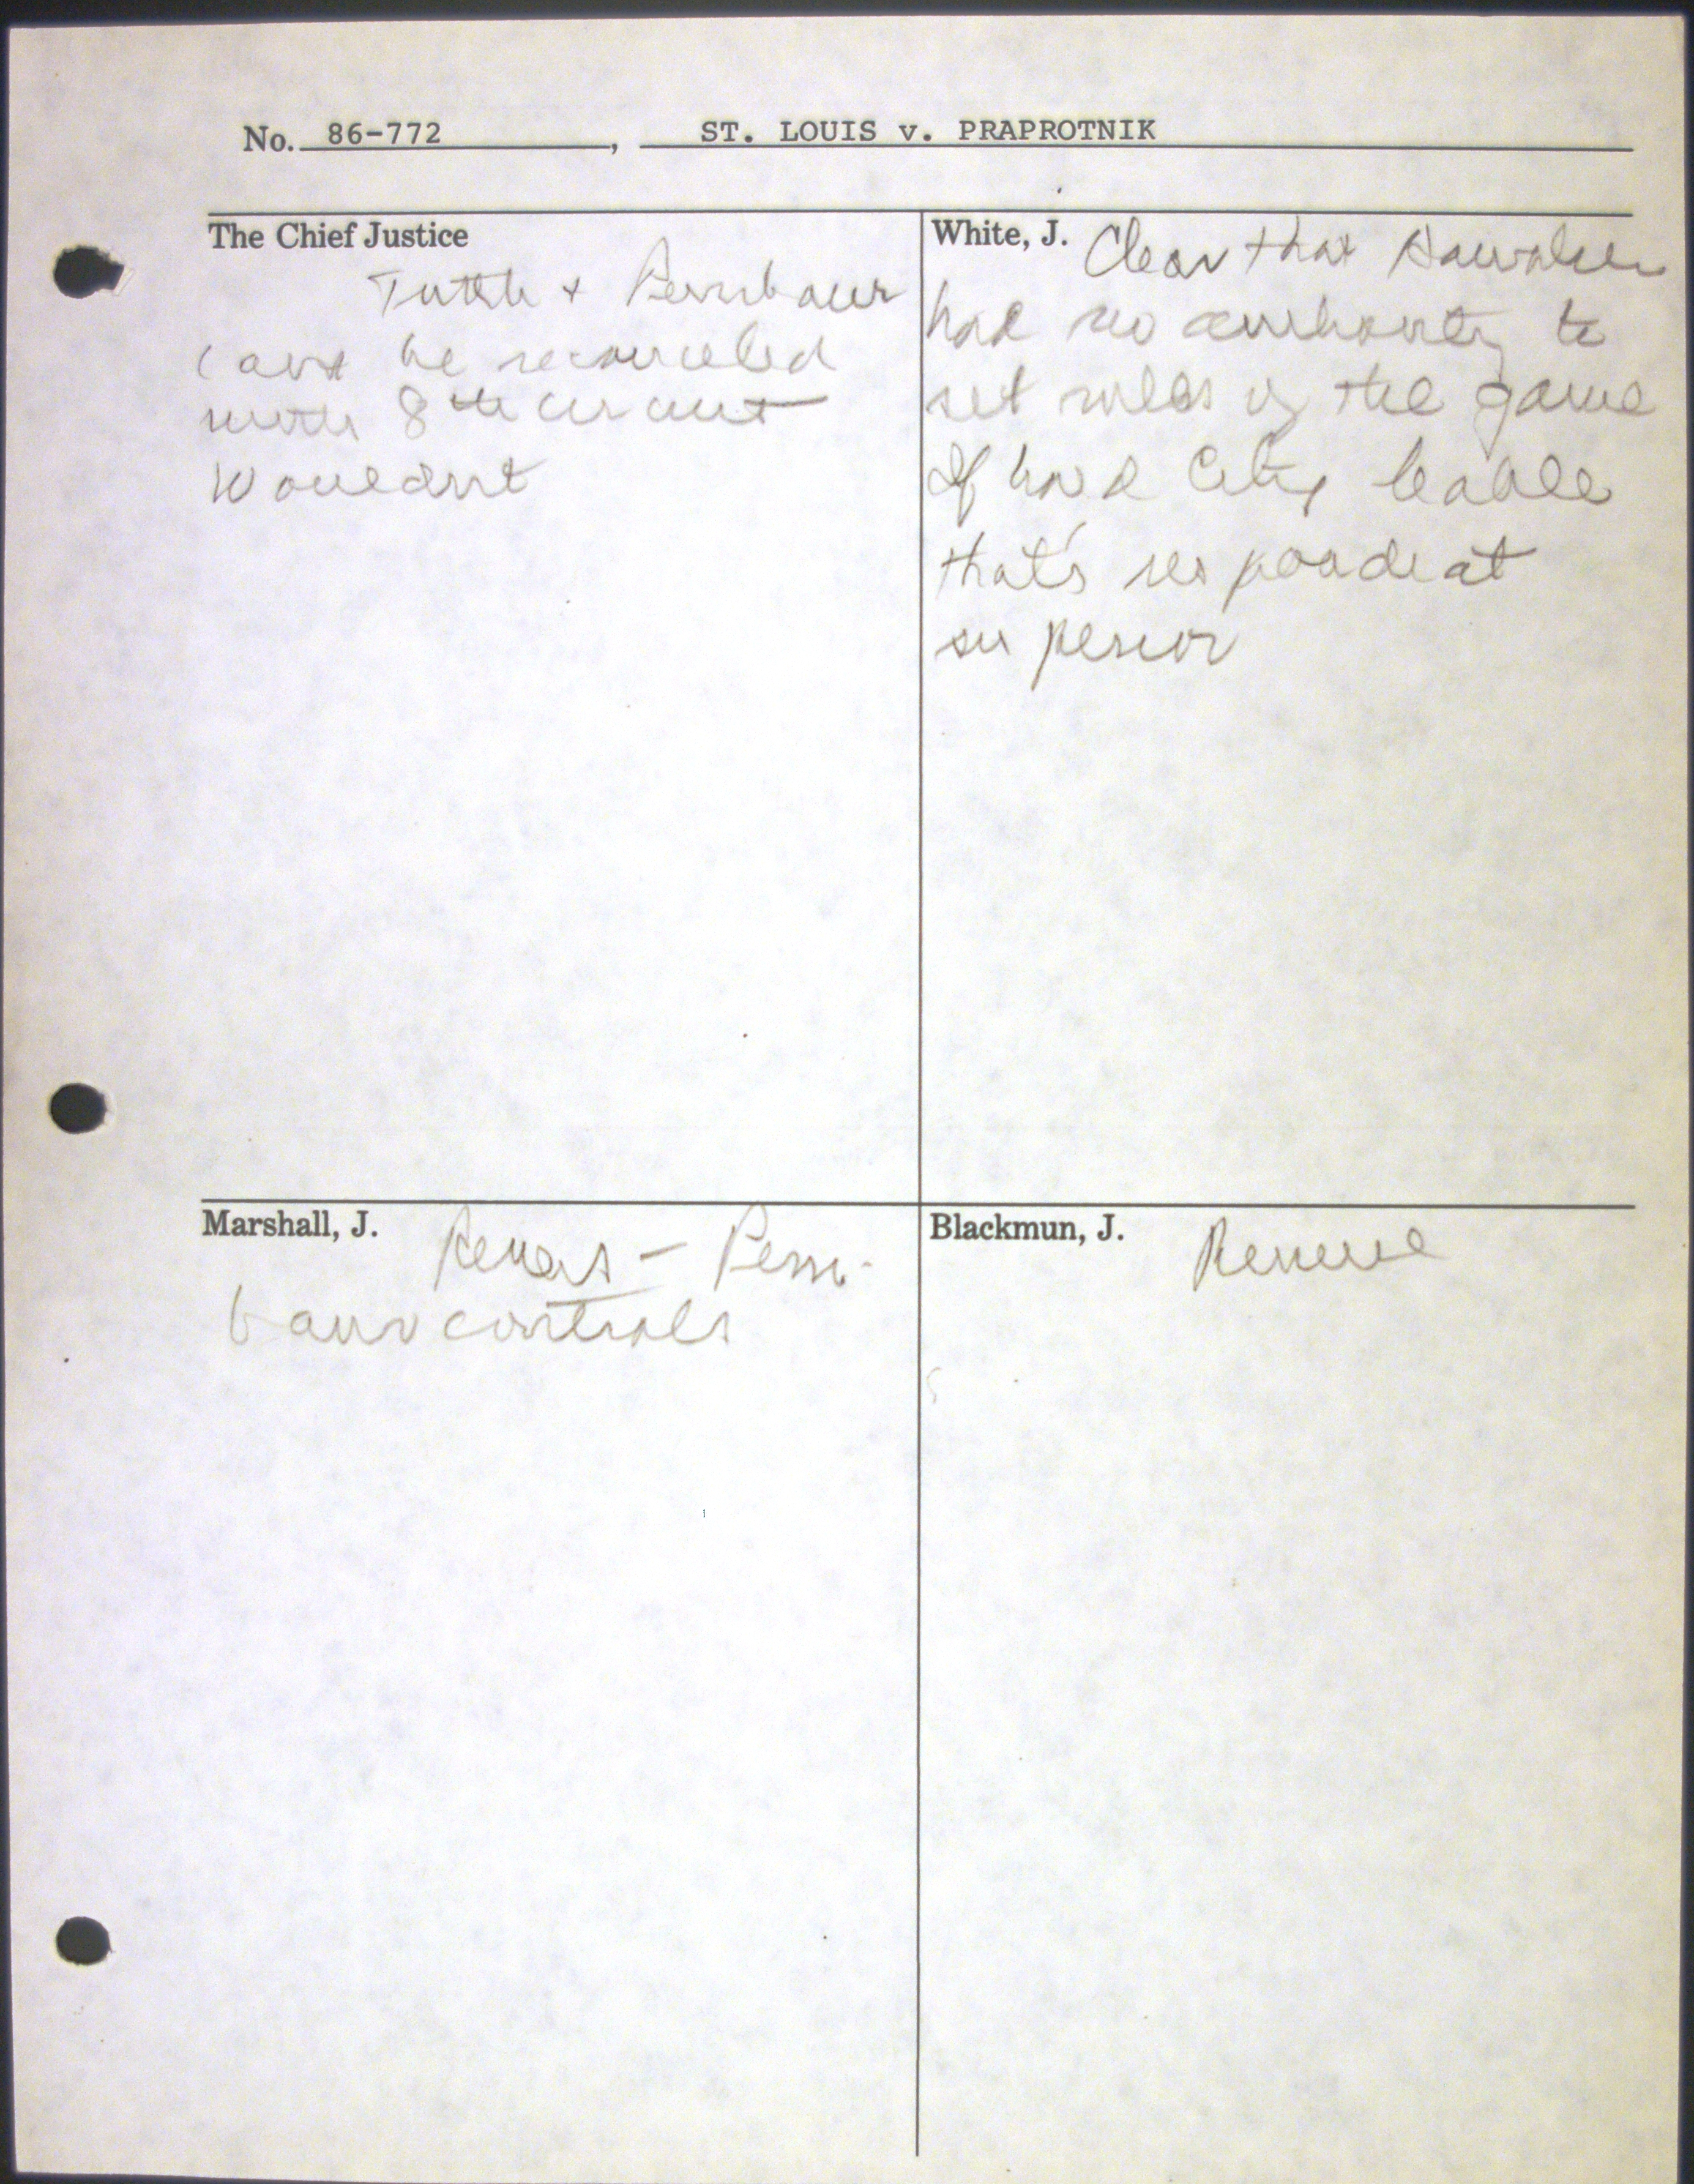 No. 86-772, ST. LOUIS v. PRAPROTNIK
The Chief Justice
Tuttle + Pembaur
cant be reconciled
with 8th circuit
Wouldnt
White, J. Clear that
had no authority to
set rules of the game
If hold City liable
that's respondeat
superior
Marshall, J. Revers - Pem-
baur controls
Blackmun, J. Reverse